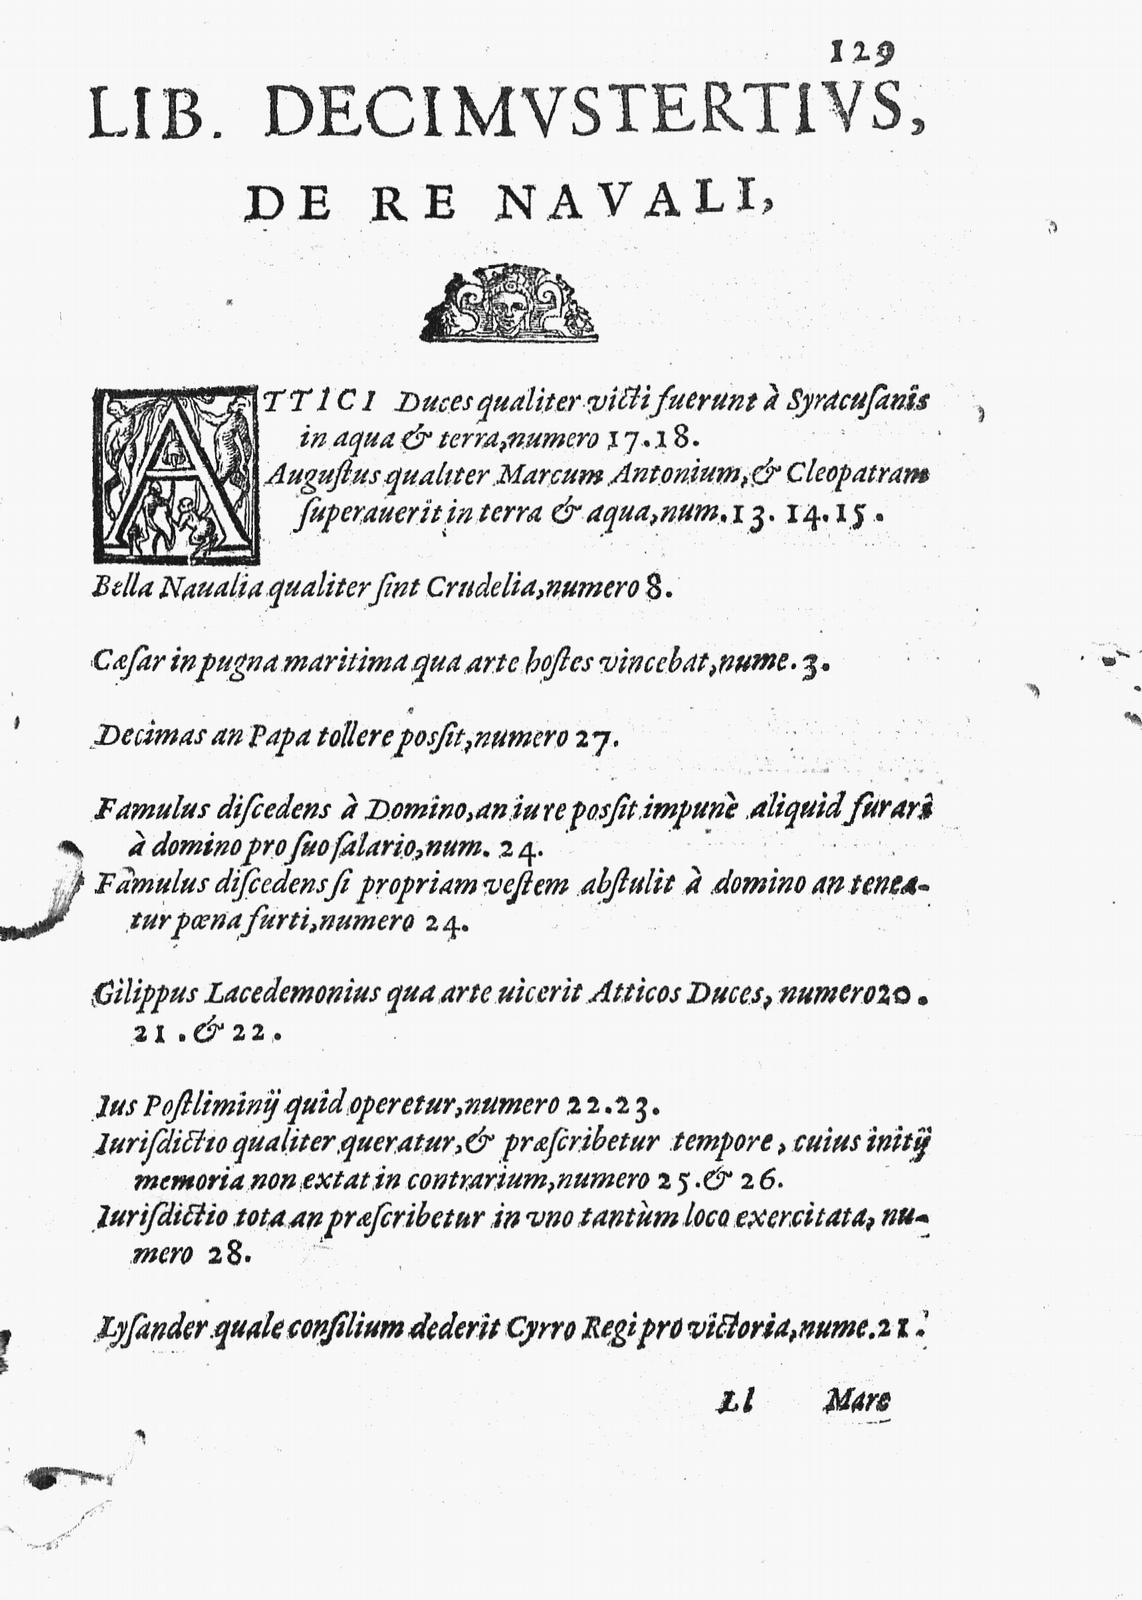 129
LIB. DECIMVSTERTIVS,
DE RE NAVALI,
ATTICI Duces qualiter victi fuerunt à Syracuſanis
in aqua & terra, numero 17.18.
Auguſtus qualiter Marcum Antonium, & Cleopatram
ſuperauerit in terra & aqua, num. 13. 14. 15.
Bella Naualia qualiter ſint Crudelia, numero 8.
Cæſar in pugna maritima qua arte hoſtes vincebat, nume. 3.
Decimas an Papa tollere poſsit, numero 27.
Famulus diſcedens à Domino, an iure poſsit impunè aliquid furari
à domino pro ſuo ſalario, num. 24.
Famulus diſcedens ſi propriam veſtem abſtulit à domino an tenea-
tur pœna furti, numero 24.
Gilippus Lacedemonius qua arte uicerit Atticos Duces, numero 20.
21. & 22.
Ius Poſtliminij quid operetur, numero 22.23.
Iuriſdictio qualiter queratur, & præſcribetur tempore, cuius initij
memoria non extat in contrarium, numero 25. & 26.
Iuriſdictio tota an præſcribetur in vno tantùm loco exercitata, nu-
mero 28.
Lyſander quale conſilium dederit Cyrro Regi pro victoria, nume. 21.
Ll Mare